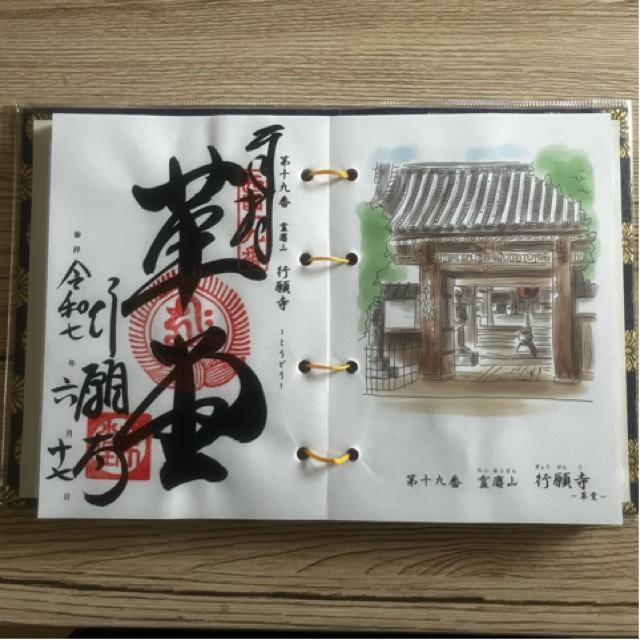 奉拝
第十九番 霊麀山 行願寺
－こうどう－
革堂
行願寺
参拝 令和七年六月十七日
第十九番 霊麀山 行願寺
れいゆうざん ぎょうがんじ
－革堂－